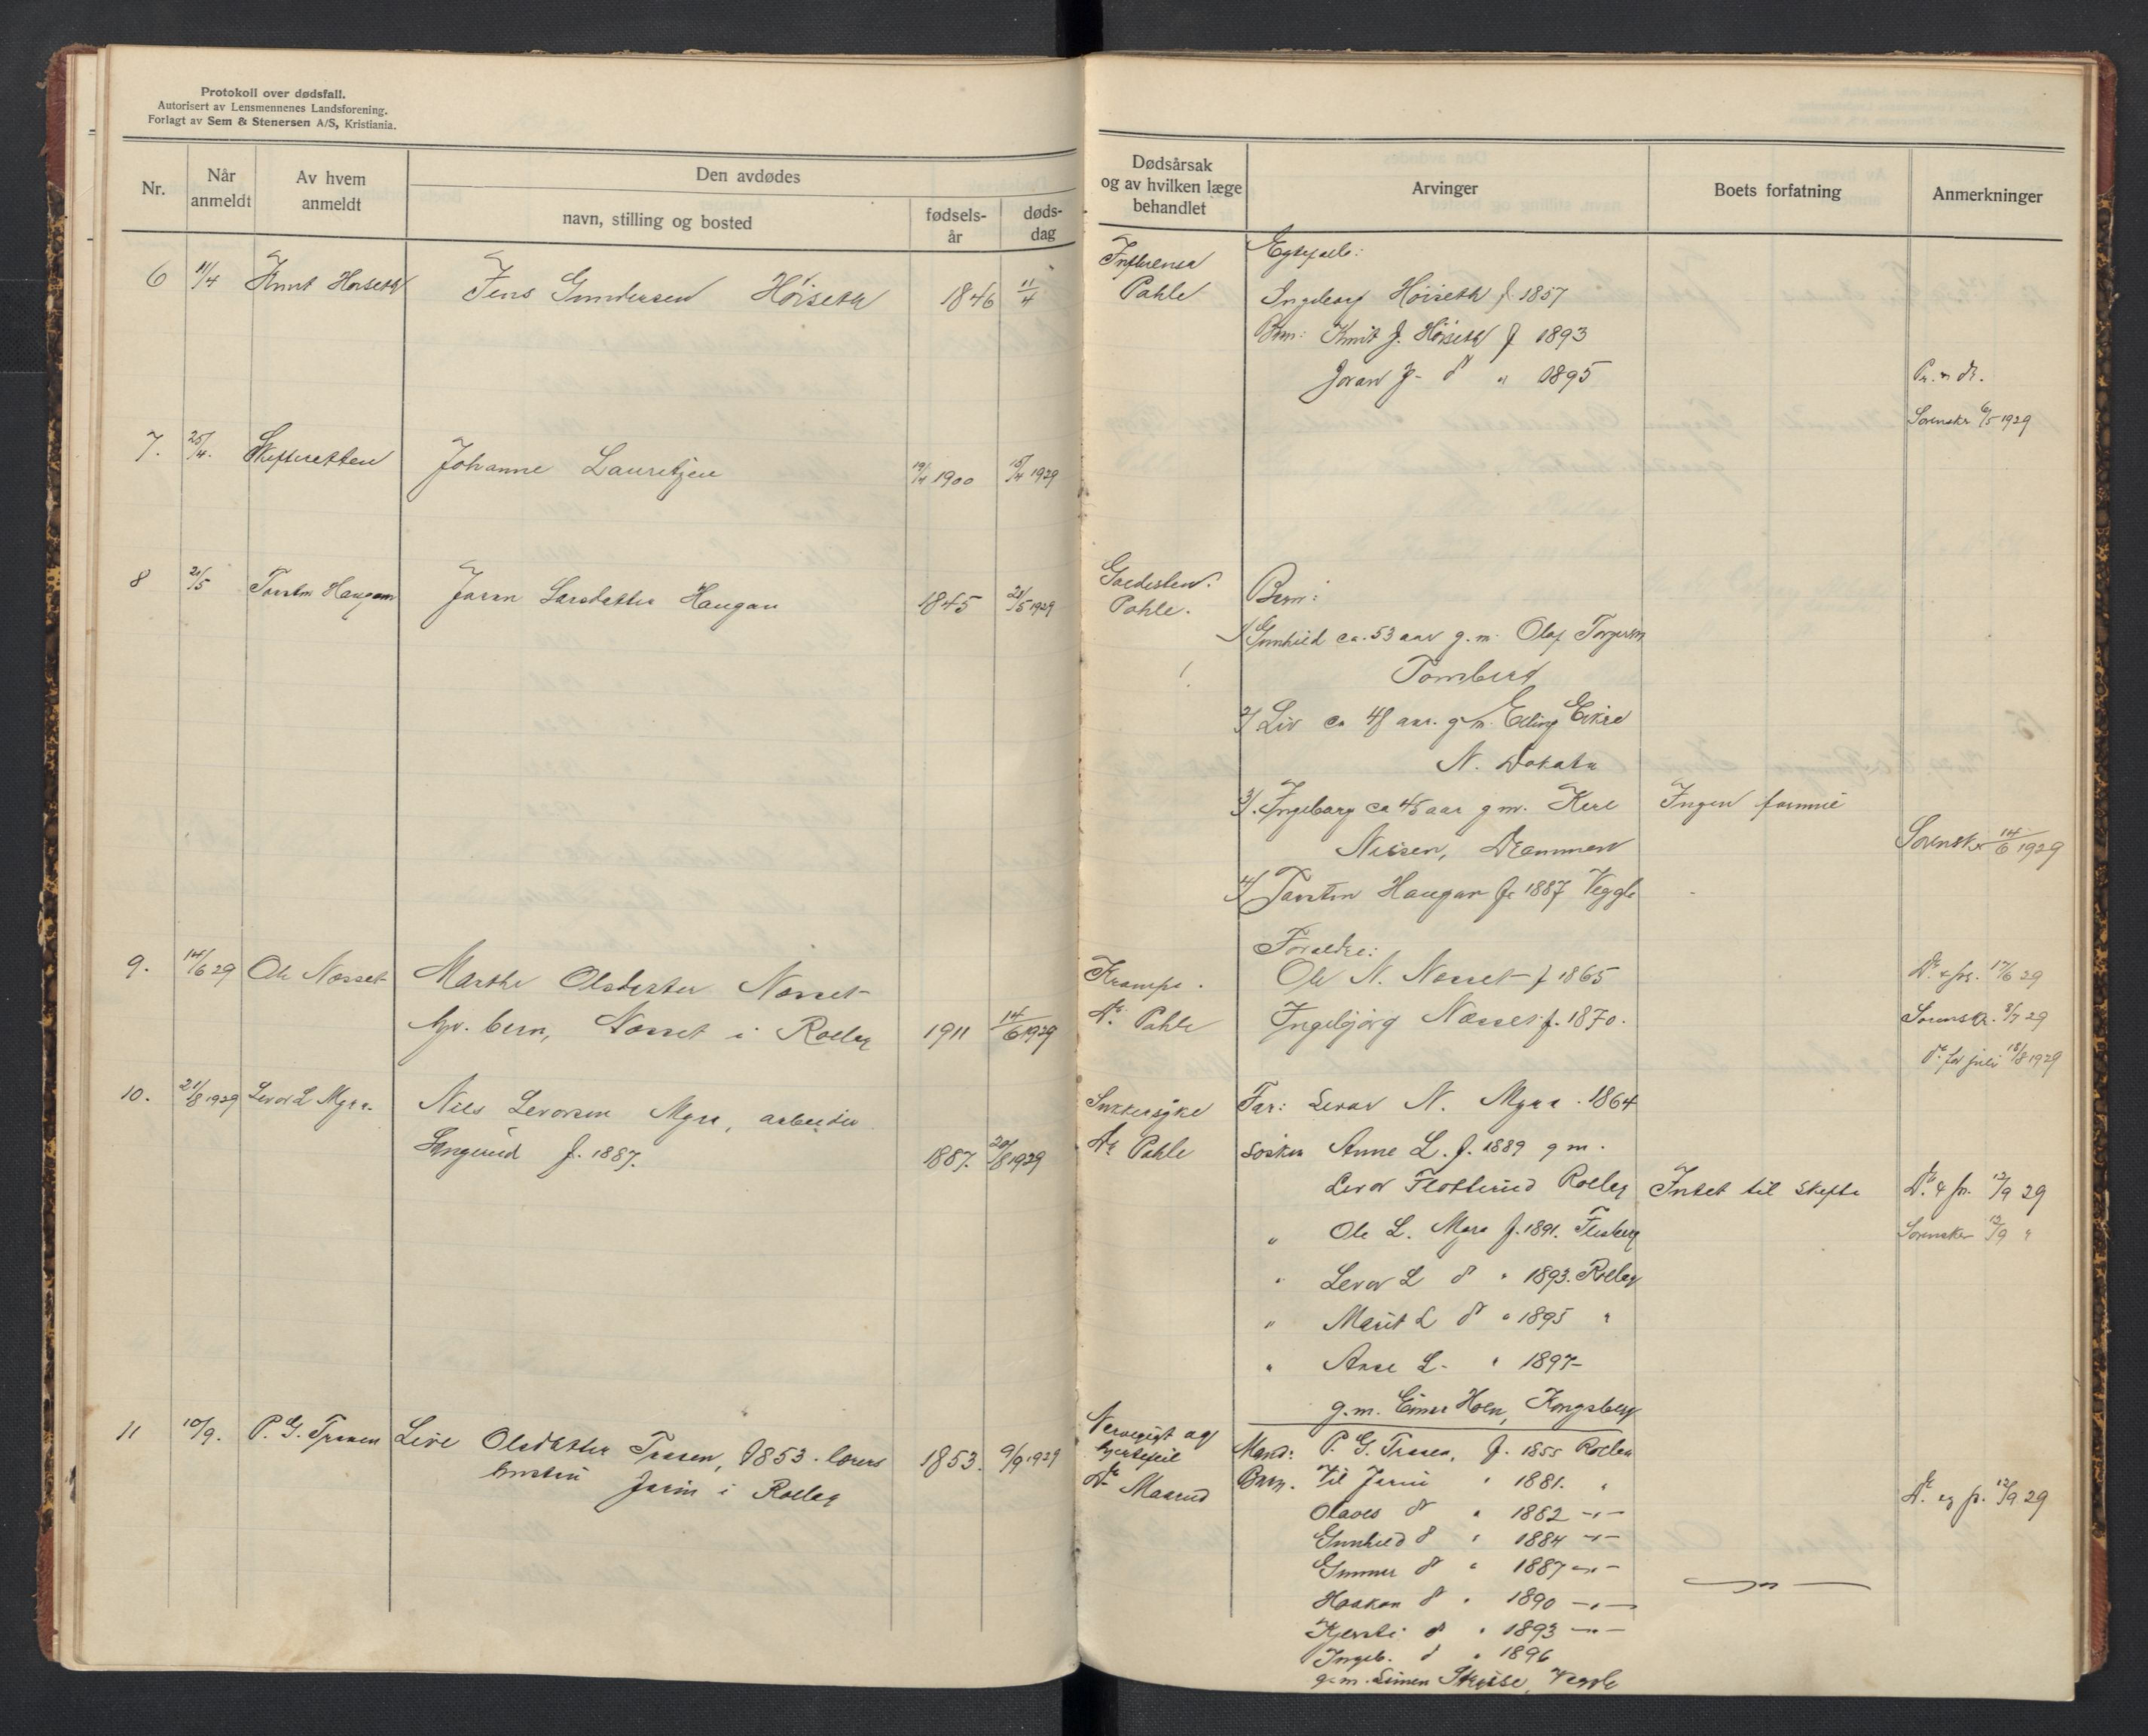 Protokoll over dødsfall.
Autorisert av Lensmennenes Landsforening.
Forlagt av Sem & Stenersen A/S, Kristiania.
Nr.
Når anmeldt
Av hvem anmeldt
Den avdødes
navn, stilling og bosted
fødsels-år
døds-dag
Dødsårsak og av hvilken læge behandlet
Arvinger
Boets forfatning
Anmerkninger
6 11/4 Knut Høiseth Jens Gundersen Høiseth 1846 11/4
Influensa
Pahle
Egtefælle:
Ingeborg Høiseth f. 1857
Barn: Knut J. Høiseth f 1893
Joran J- d " 1895
Sorenskr 6/5 1929
7. 25/4. Skifteretten Johanne Lauritzen 19/4 1900 15/4 1929
8 21/5 Torsten Haugan Joran Larsdatter Haugan 1845 21/5 1929
Galdesten.
Pahle.
Barn:
1/ Gunhild ca. 53 aar g. m. Olaf Torgersen
2/ Liv ca 48 aar. g. m. Elling Eikre
N. Dakota
3/. Ingeborg ca 45 aar g m. Kere
Nissen, Drammen
Ingen formue
Sorenskr 14/6 1929
4/ Torsten Haugan f. 1887 Veggli
9. 14/6 29 Ole Næsset Marthe Olsdatter Næsset
hjv. barn, Næsset i Rolleg 1911 14/6 1929
Krampe.
Dr. Pahle
Forældre:
Ole N. Næsset f 1865
Ingebjørg Næsset f. 1870.
Dr. & pr. 17/6 29
Sorenskr. 8/7 29
dr. for juli 18/8 1929
10. 21/8 1929 Levor L Myra. Nils Levorsen Myra, arbeider
f. 1887. 1887. 20/8 1929
Sukkersyke
Dr Pahle
Far: Levor N. Myra. 1864
søsken Anne L. f. 1889 g m.
Levor Flotterud Rolleg
Intet til skifte
Dr. & pr. 12/9 29
" Ole L. Myra f. 1891. Flesberg
Sorensker 12/9 "
" Levor L d " 1893. Rolleg
" Marit L d " 1895 "
" Anne L- " 1897-
g. m. Einar Hoen, Kongsberg
11 10/9. P. G. Traaen Live Olsdatter Traaen, 1853. lærers
hustru Jarin i Rolleg 1853. 9/9 1929
Nervegigt og
hjertefeil
Dr Maarud
Mand: P. G. Traaen, f. 1855 Rolleg
Barn. " 1881. "
Olaves d " 1882 -"-
Gunhild d " 1884 -"-
Gunnar d " 1887 -"-
Haakon d " 1890 -"-
Kjersti d " 1893 -"-
Ingeb. d " 1896
g. m. Simen Veggli
-"-
Dr. og pr. 12/9 29